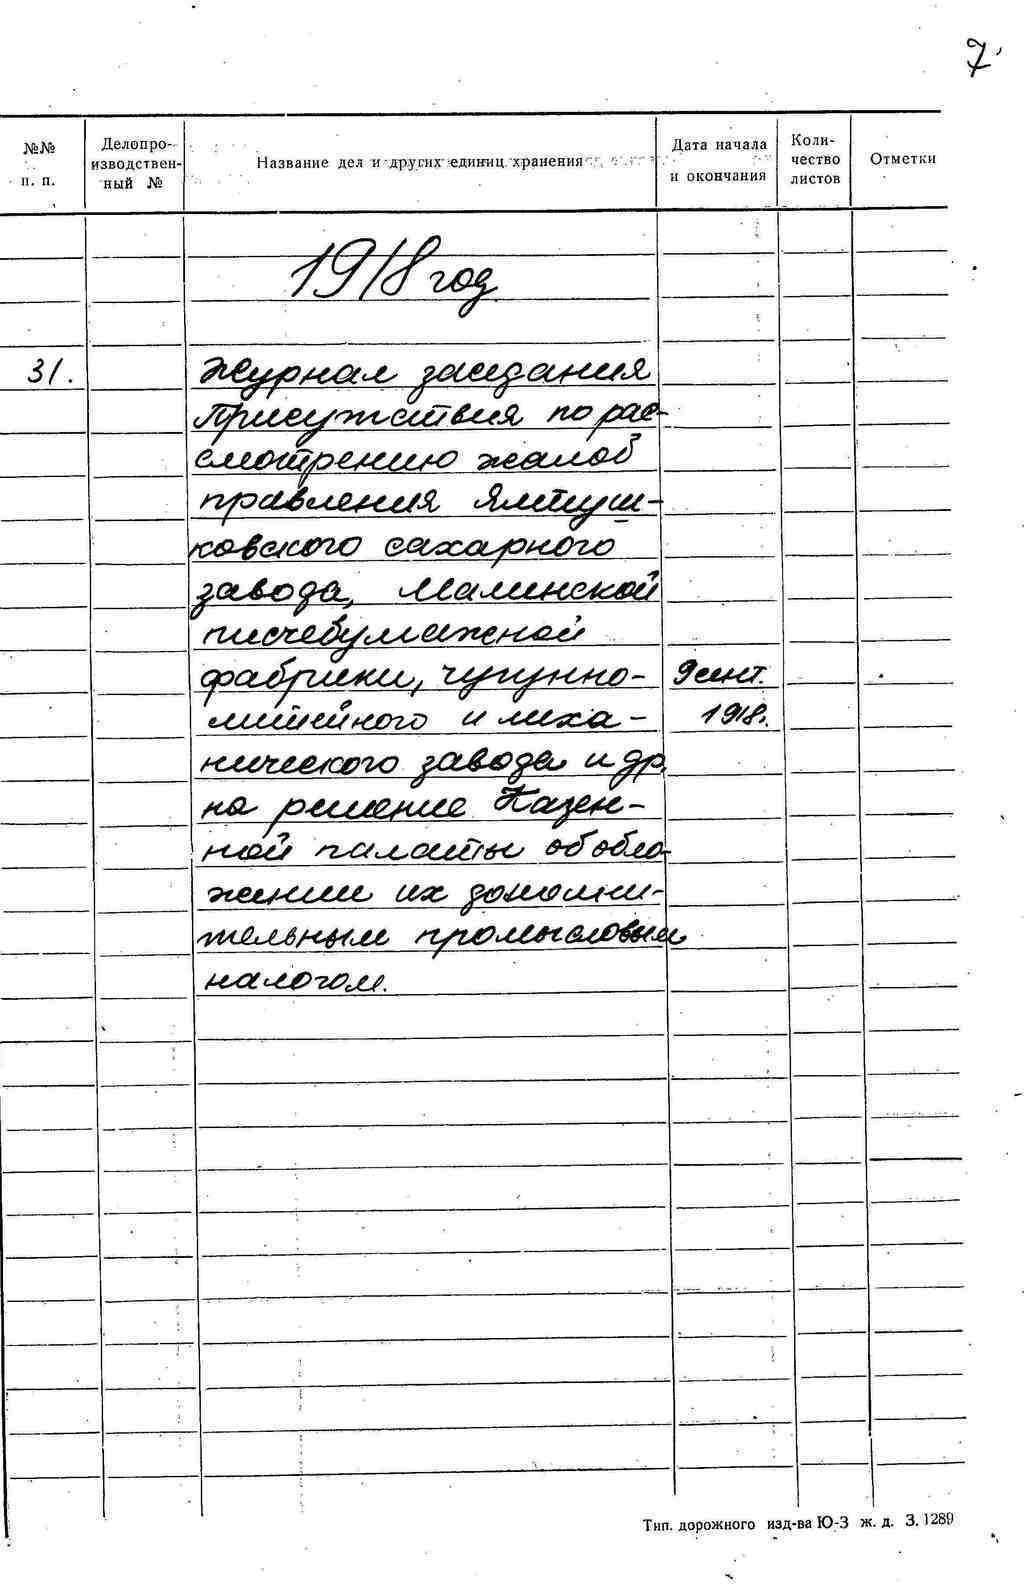 7
№№ п. п. Делопроизводственный № Название дел и других единиц хранения Дата начала и окончания Количество листов Отметки
1918 год
31. Журнал заседания
Присутствия по рас-
смотрению жалоб
правления Ялтуш-
ковского сахарного
завода, Малинской
писчебумажной
фабрики, чугунно- 9 сент.
литейного и меха- 1918г.
нического завода и др.
на решение Казен-
ной палаты об обло-
жении их дополни-
тельным промысловым
налогом.
Тип. дорожного изд-ва Ю-З ж. д. З. 1289